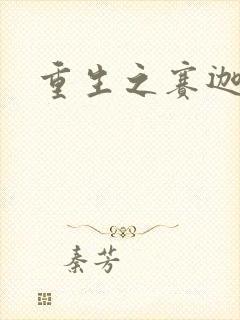 重生之赛迦
秦芳